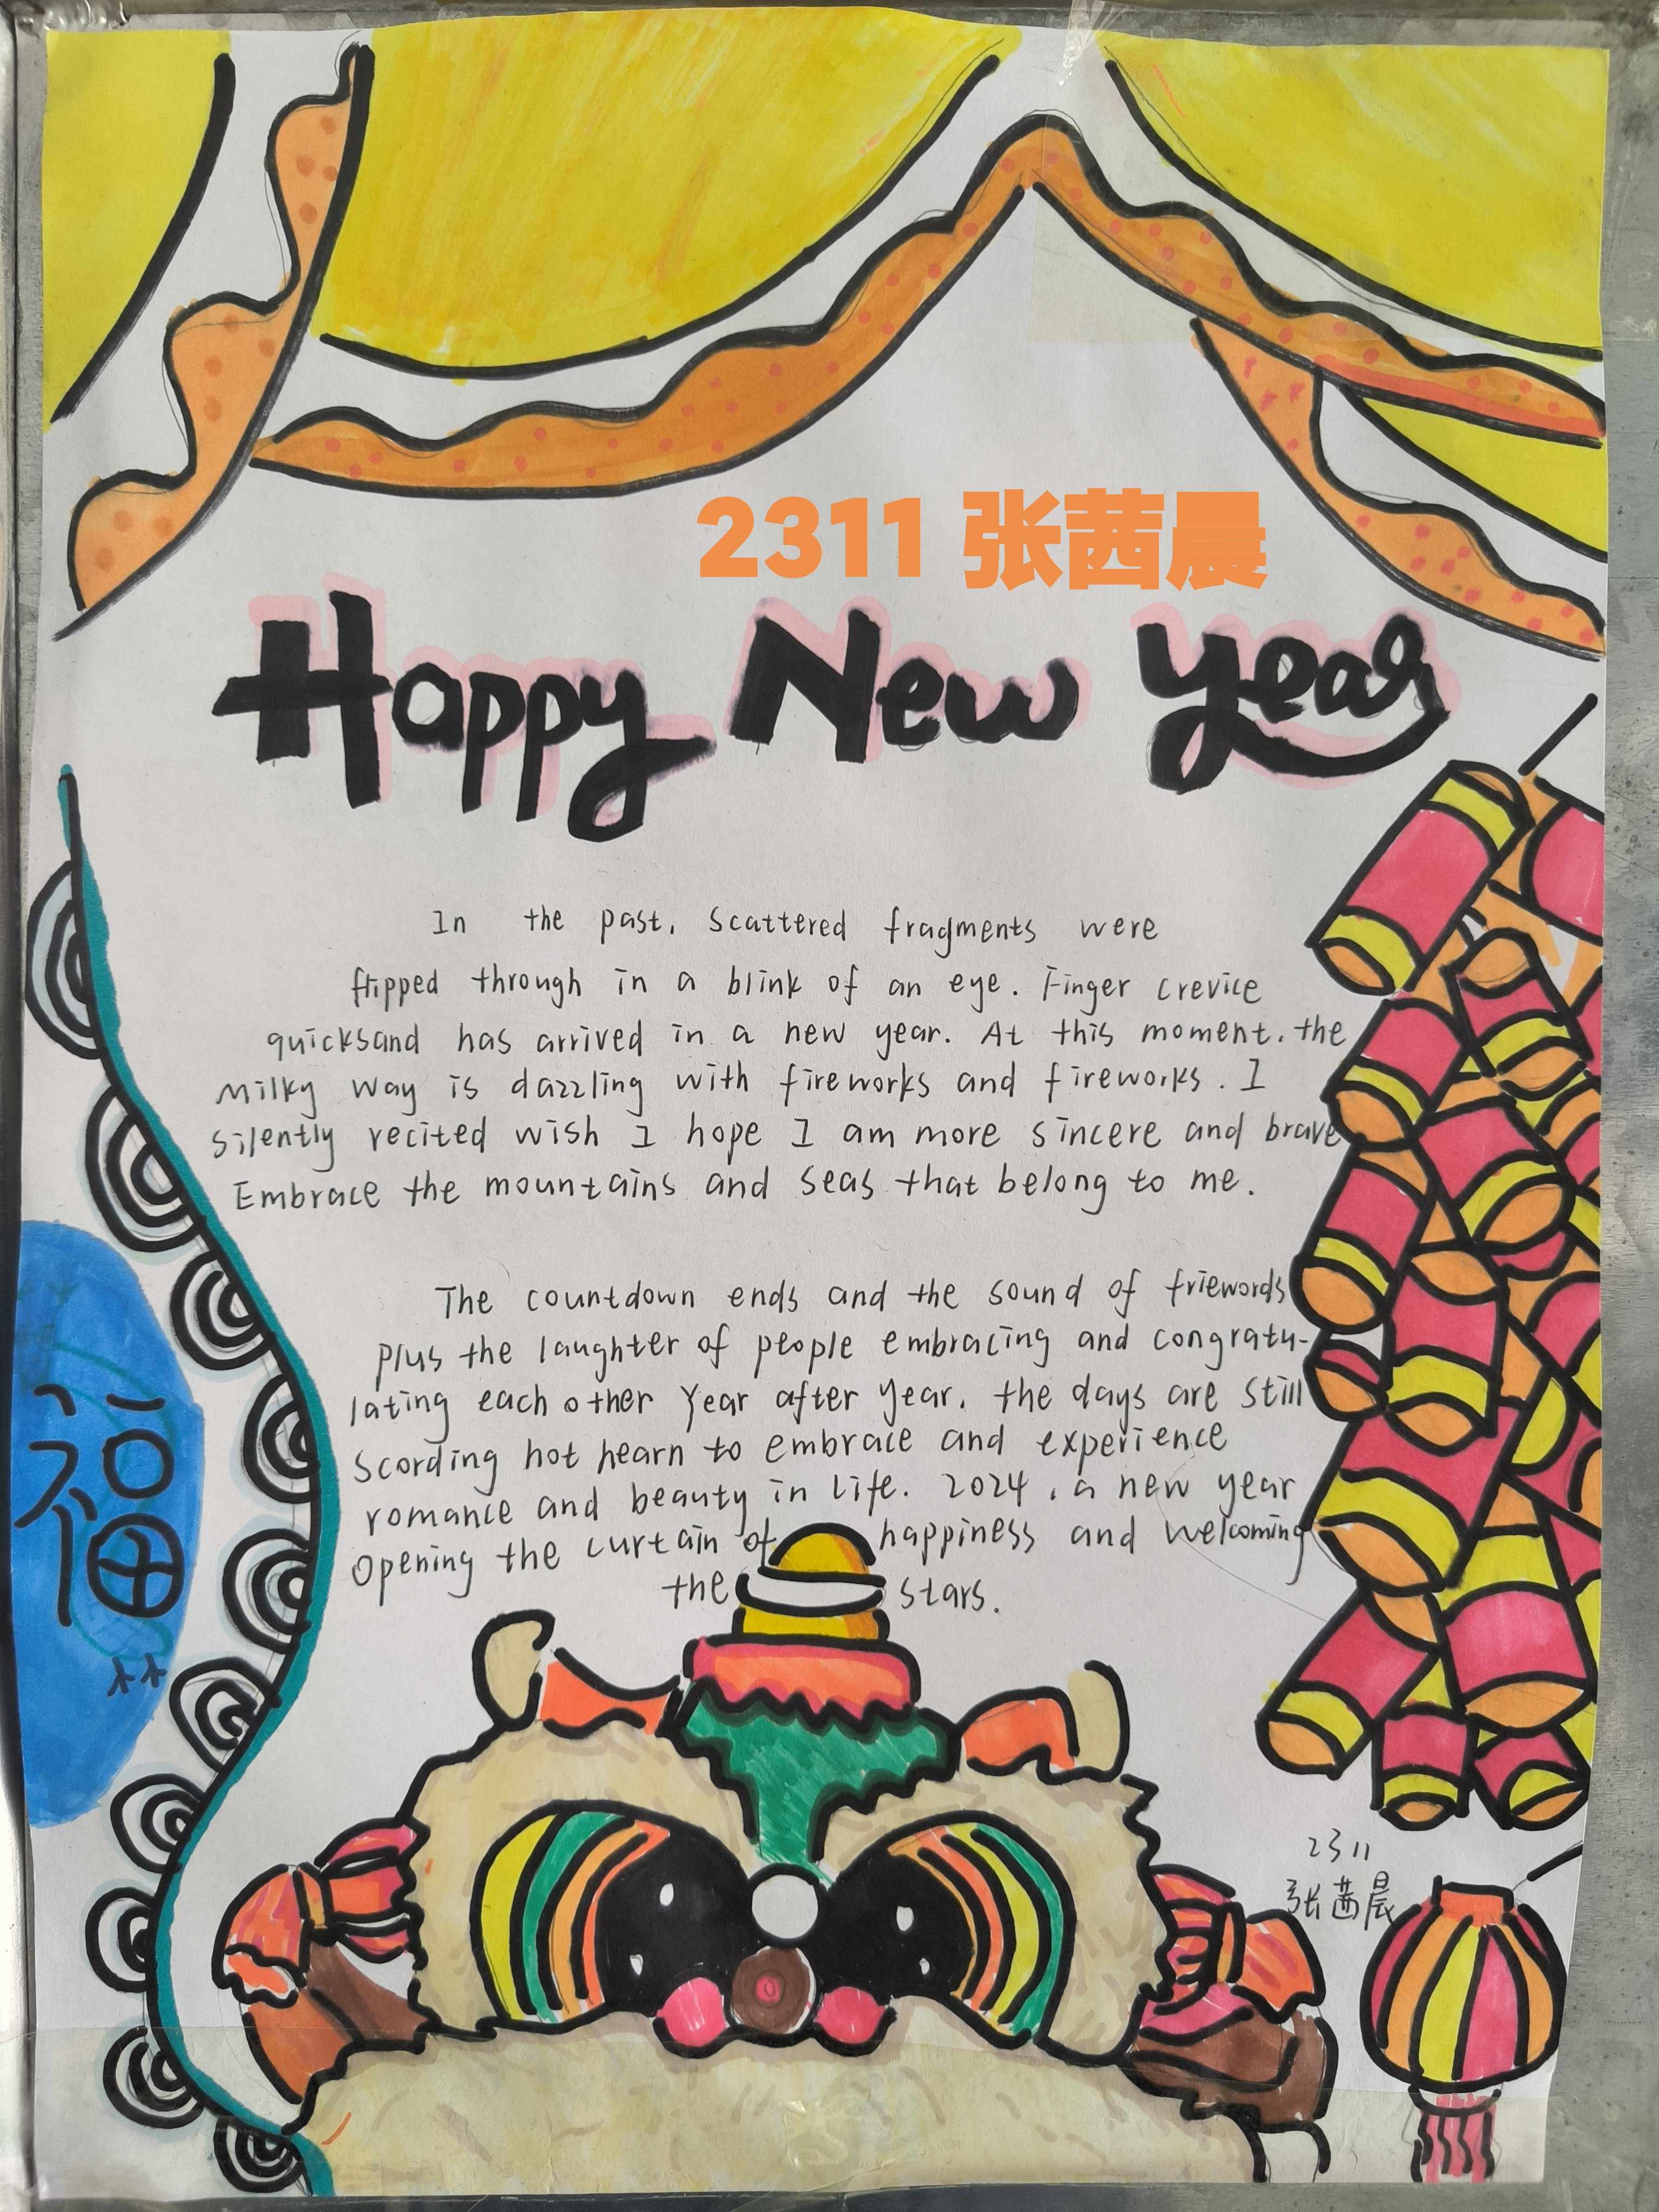 2311 张茜晨
Happy New Year
In the past, scattered fragments were
flipped through in a blink of an eye. Finger crevice
quicksand has arrived in a new year. At this moment, the
Milky Way is dazzling with fireworks and fireworks. I
silently recited wish I hope I am more sincere and brave
Embrace the mountains and seas that belong to me.
The countdown ends and the sound of friewords
plus the laughter of people embracing and congratu-
lating each other Year after year, the days are still
scording hot hearn to embrace and experience
romance and beauty in life. 2024, a new year
Opening the curtain of happiness and welcoming
the stars.
福
2311
张茜晨